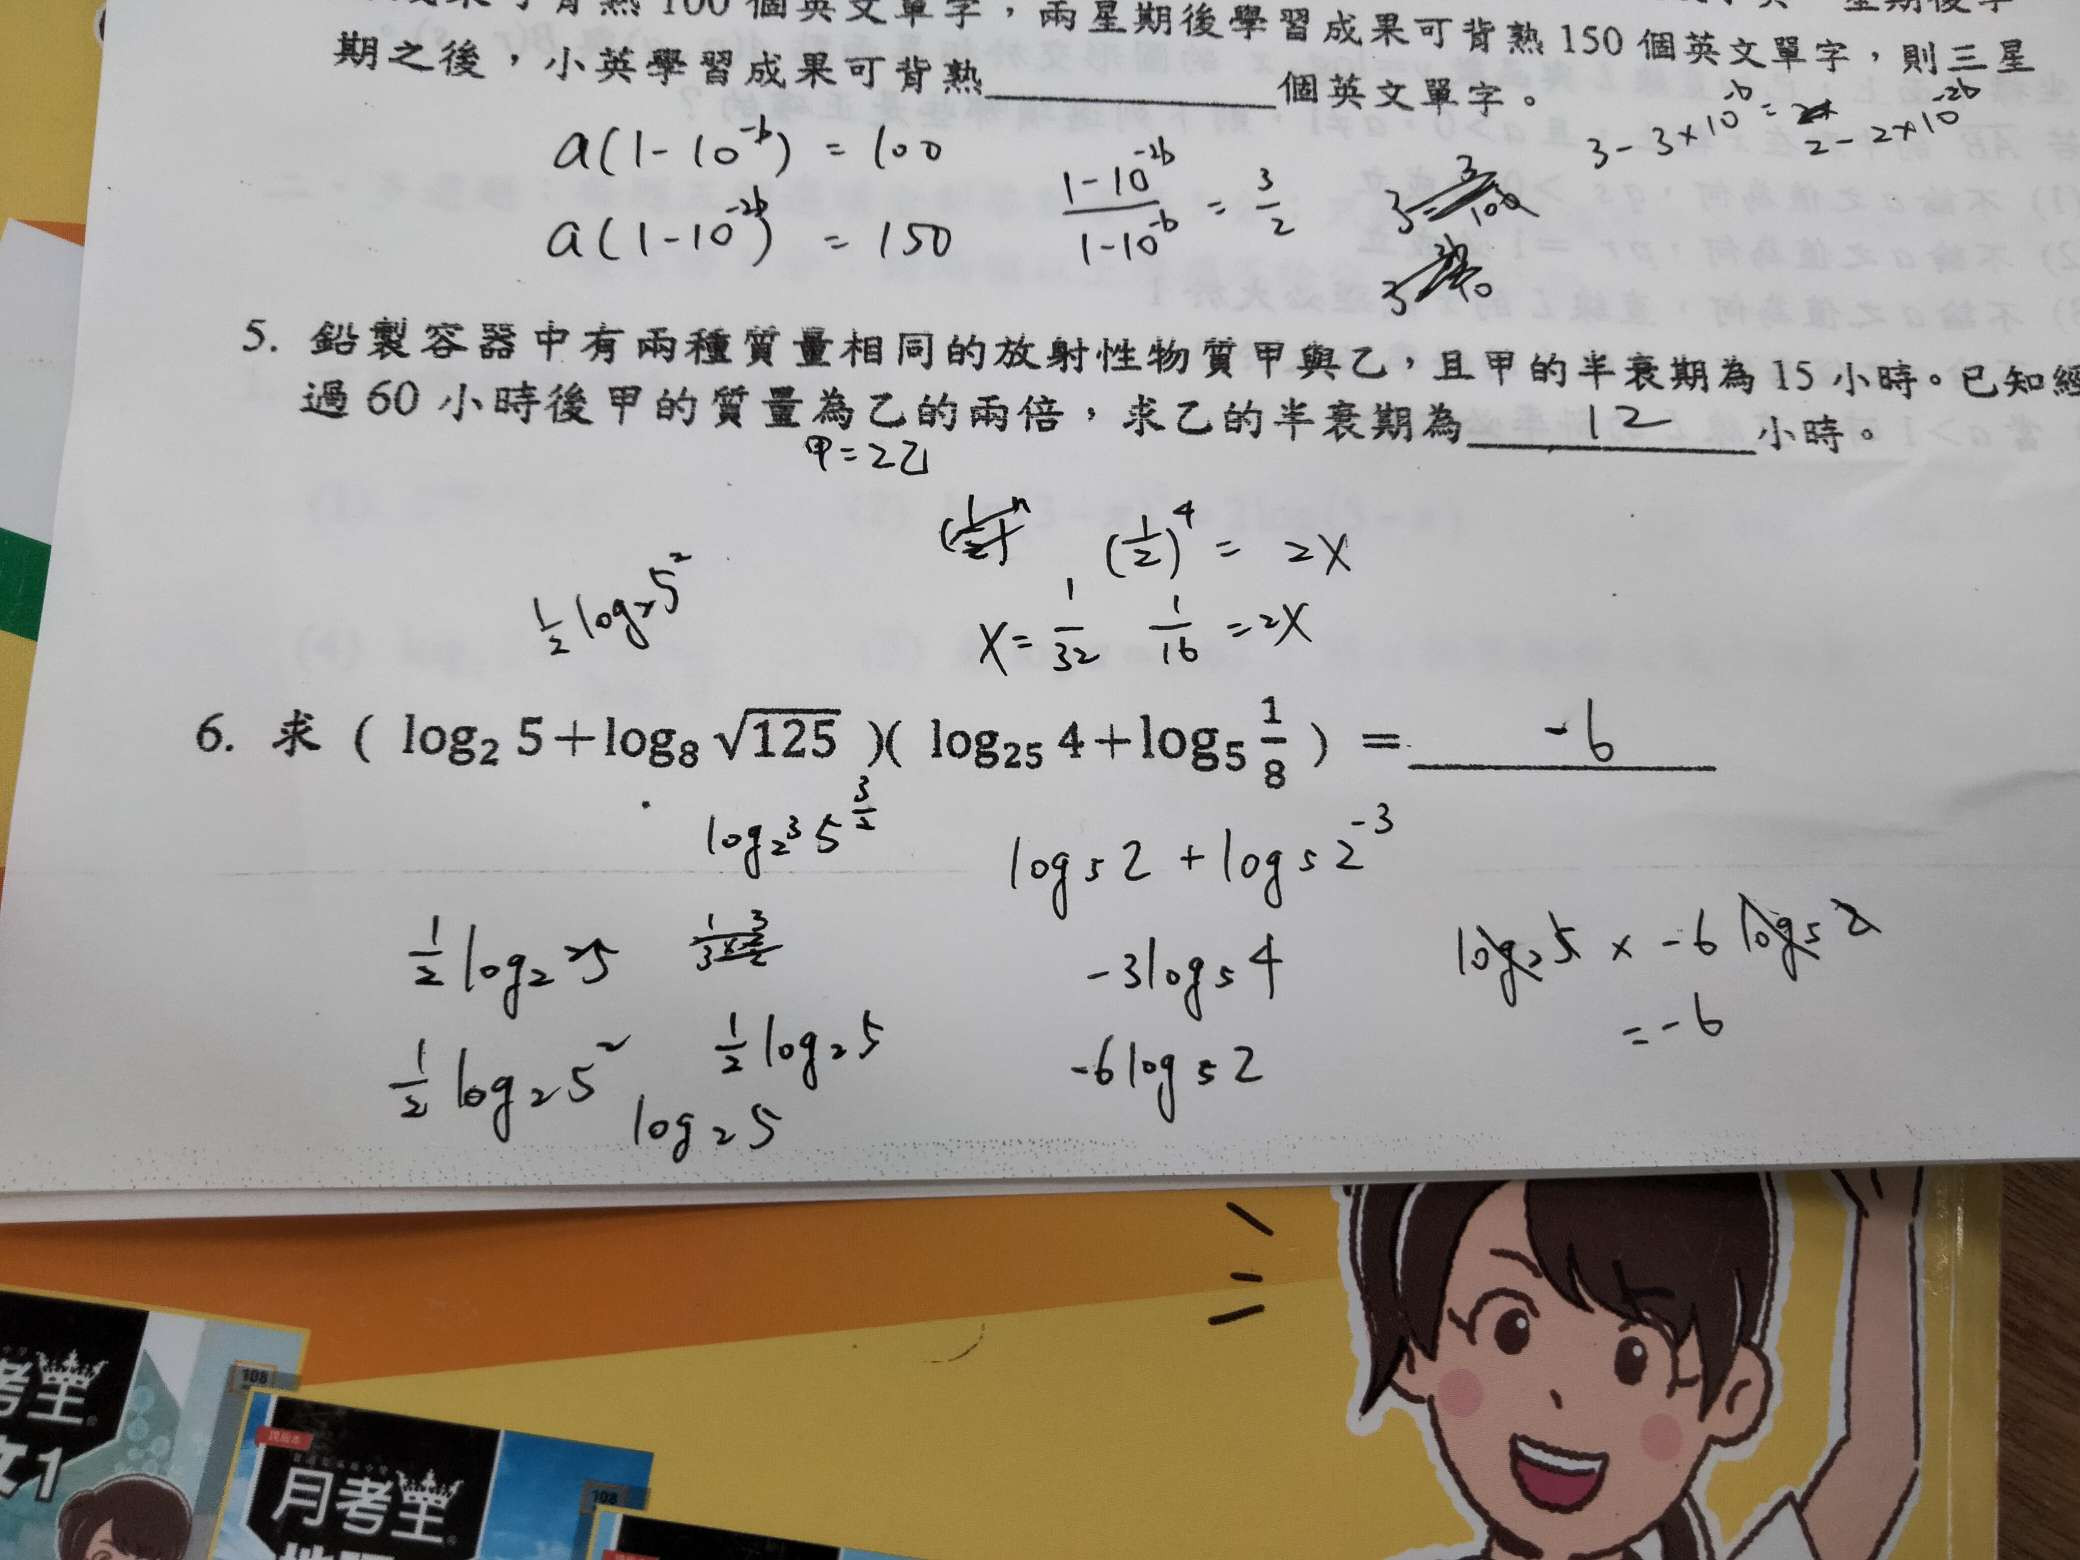 可背熟 100 個英文單字，兩星期後學習成果可背熟 150 個英文單字，則三星
期之後，小英學習成果可背熟____個英文單字。
3 - 3×10^-b = 2 - 2×10^-2b
a(1-10^-b) = 100
a(1-10^-2b) = 150
1-10^-2b / 1-10^-b = 3/2
5. 鉛製容器中有兩種質量相同的放射性物質甲與乙，且甲的半衰期為 15 小時。已知經
過 60 小時後甲的質量為乙的兩倍，求乙的半衰期為 12 小時。
甲=2乙
(1/2)^n (1/2)^4 = 2X
1/2 log₂5²
X = 1/32 1/16 = 2X
6. 求 ( log₂ 5+log₈ √125 )( log₂₅ 4+log₅ 1/8 ) = -6
log₂³ 5^3/2
log₅2 + log₅2^-3
1/2 log₂ 25
-3log₅4
log₂5 × -6 log₅2
= -6
1/2 log₂5²
1/2 log₂5
-6log₅2
log₂5
考王
文1
108
月考王
108